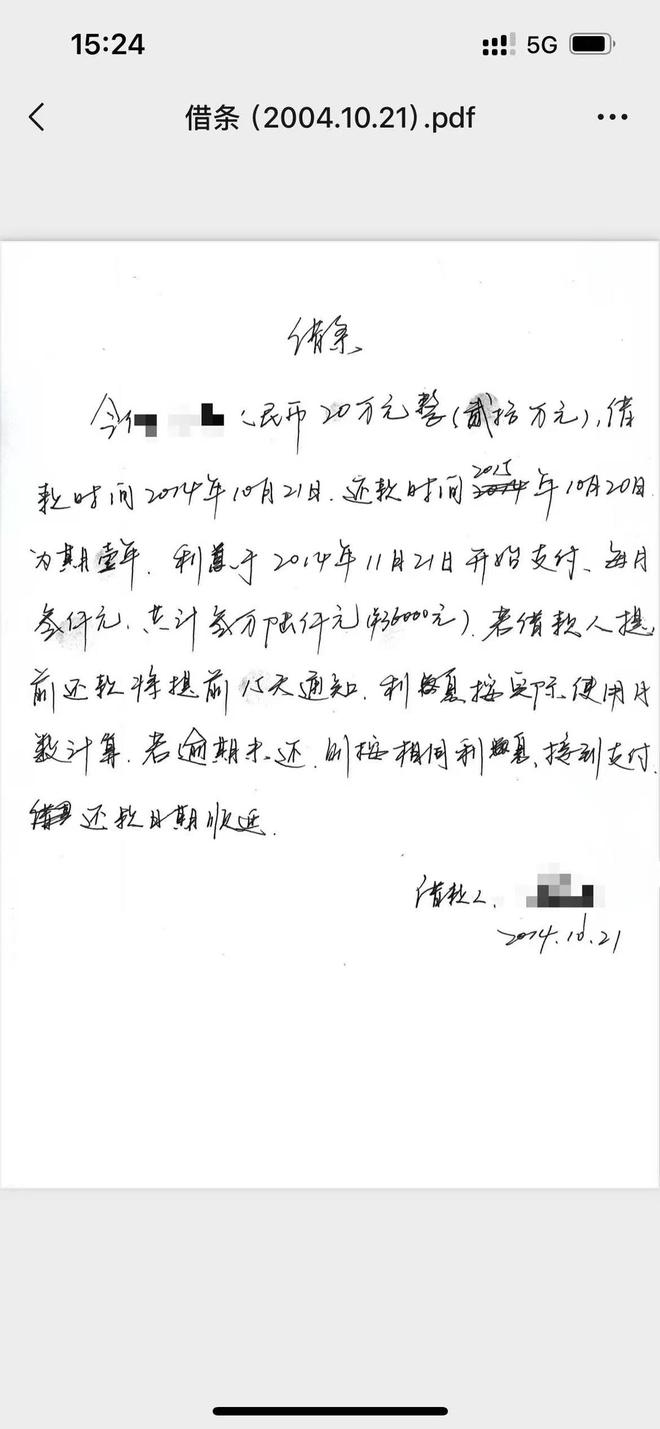 15:24
5G
借条 (2004.10.21).pdf
借条
今 民币20万元整(贰拾万元),借
款时间2014年10月21日.还款时间2015年10月20日
为期壹年.利息于2014年11月21日开始支付、每月
叁仟元.共计叁万陆仟元(¥36000元).若借款人提
前还款将提前15天通知.利息按实际使用月
数计算.若逾期未还.则按相同利息、接到支付.
还款日期顺延.
借款人.
2014.10.21